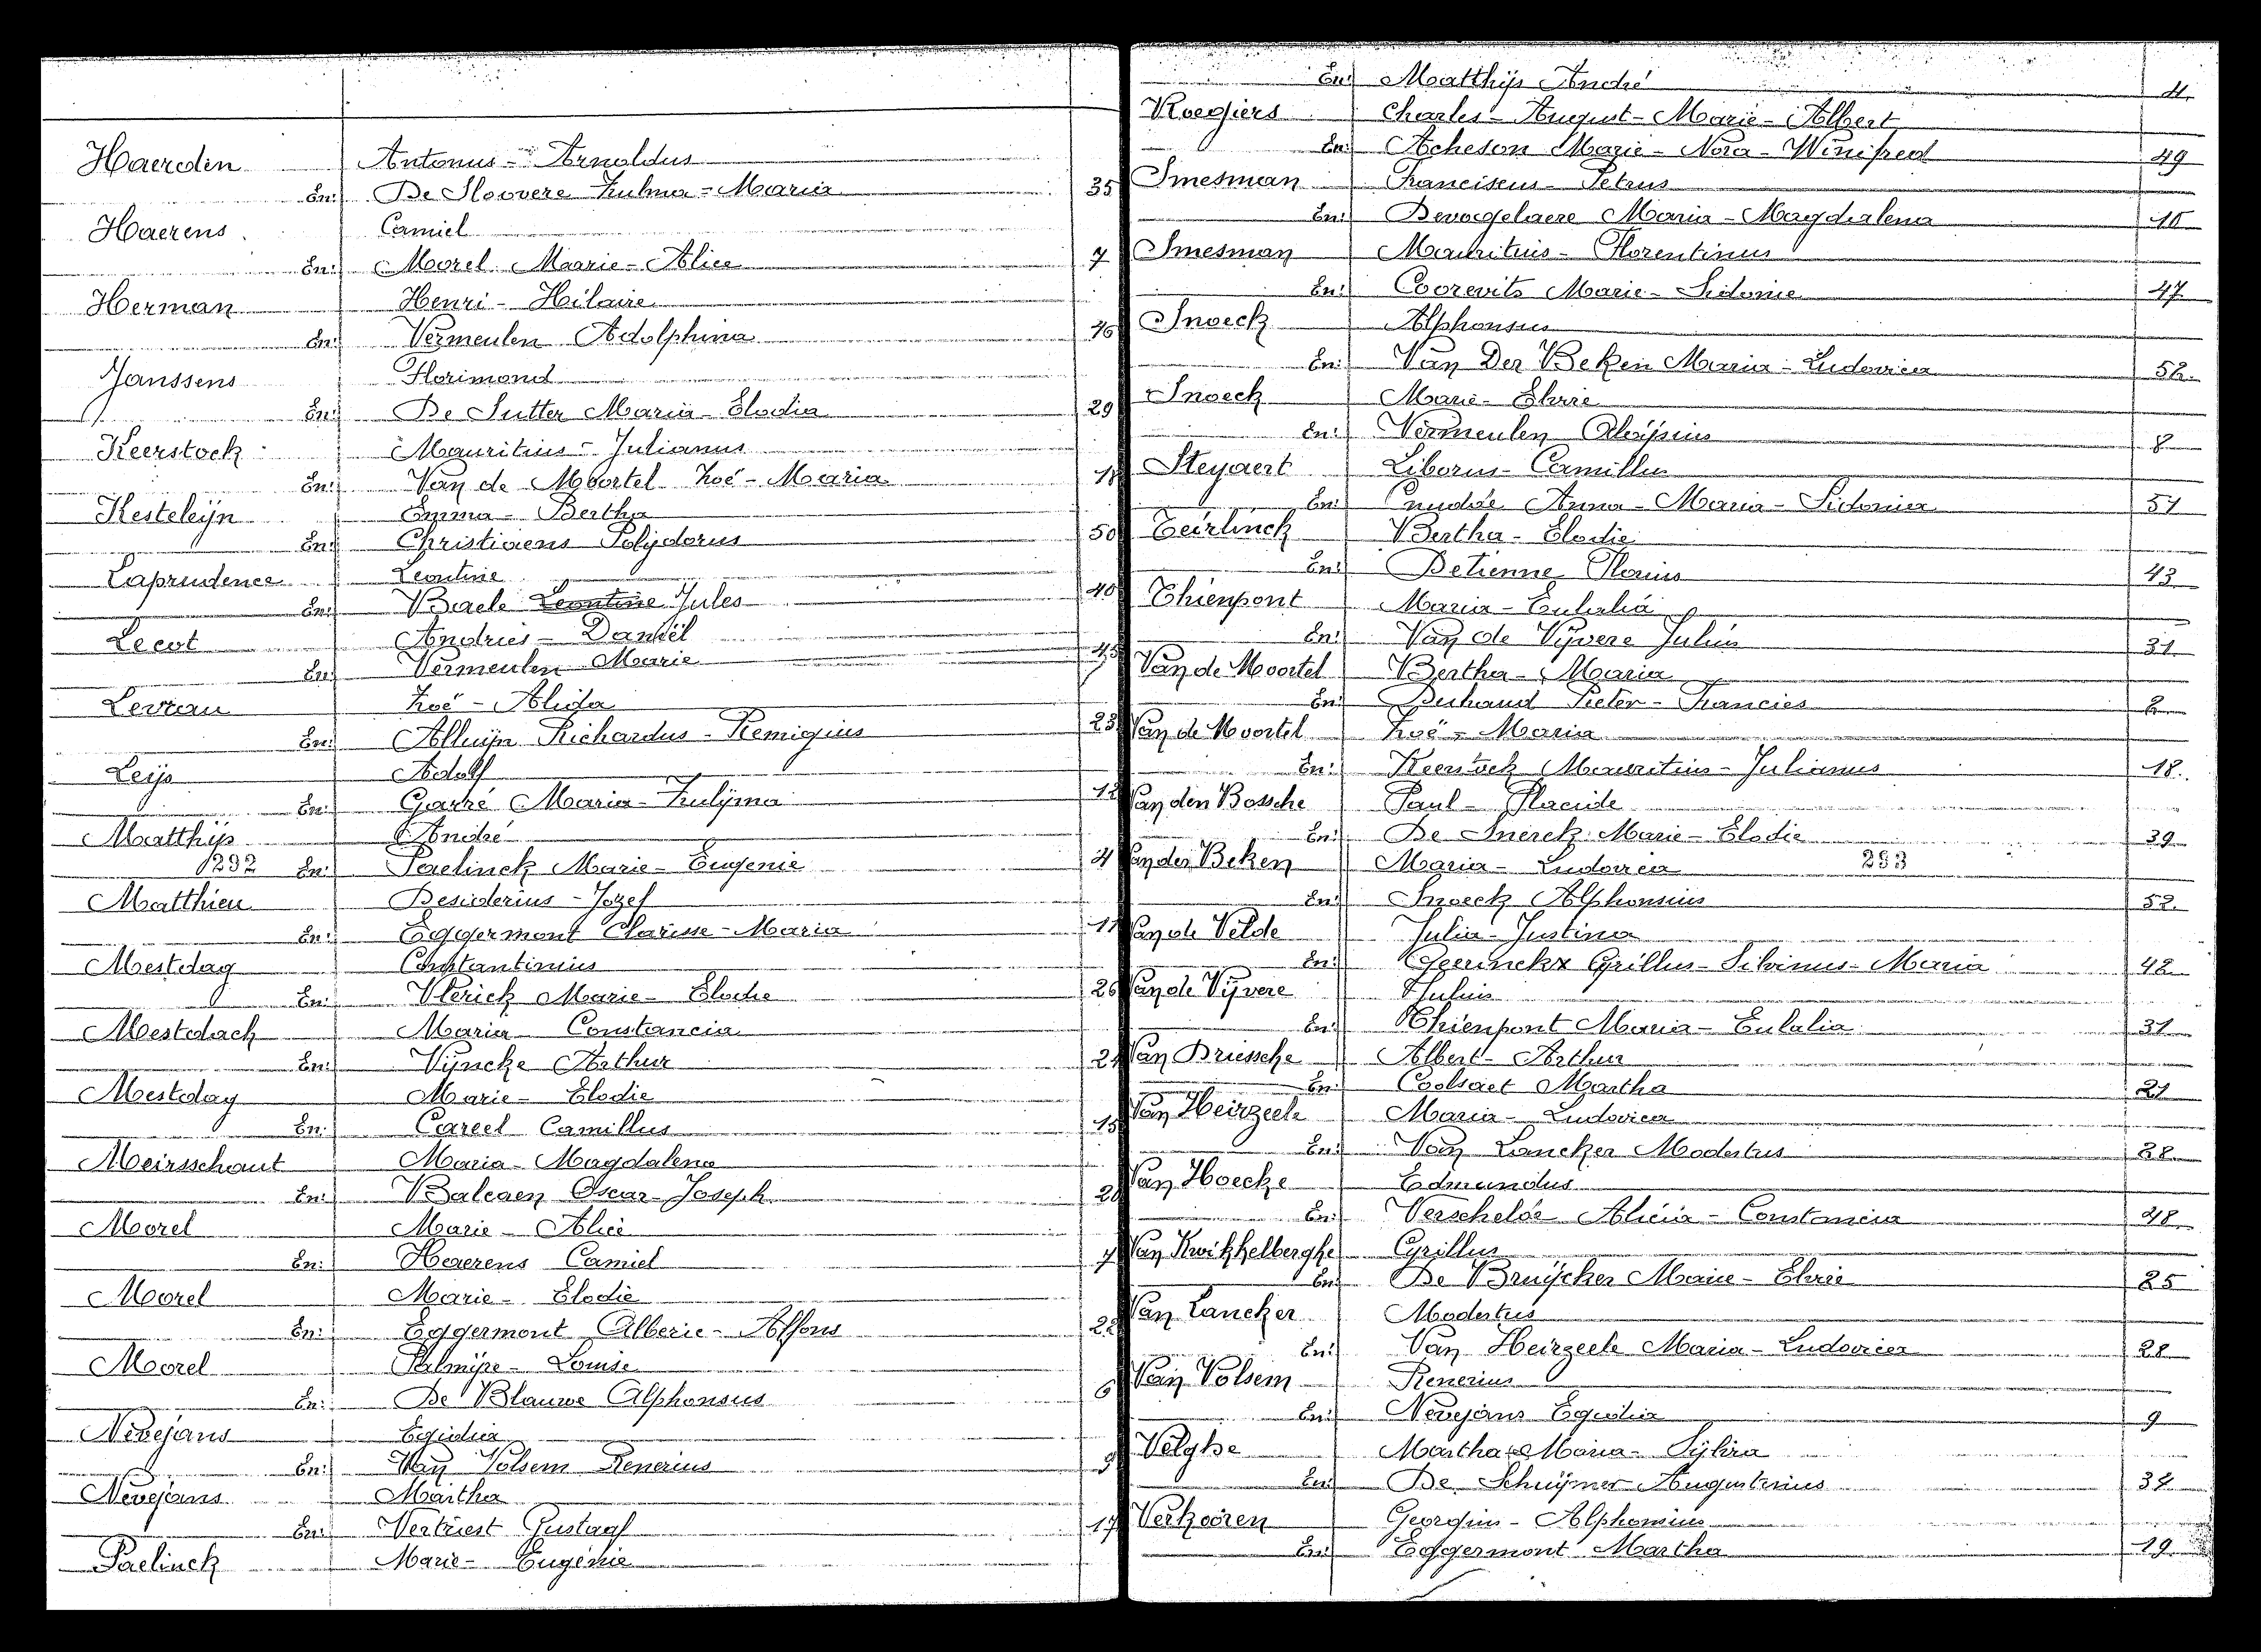 Haerden Antonus - Arnoldus
En: De Sloovere Zulma - Maria 35
Haerens Camiel
En: Morel Marie - Alice 7
Herman Henri - Hilaire
En: Vermeulen Adolphina 46
Janssens Florimond
En: De Sutter Maria - Elodia 29
Keerstock Mauritius - Julianus
En: Van de Moortel Zoé - Maria 18
Kesteleijn Emma - Bertha
En: Christiaens Polijdorus 50
Laprudence Leontine
En: Baele Leontine Jules 40
Lecot Andries - Daniël
En: Vermeulen Marie 45
Levrau Zoé - Alida
En: Alluijn Richardus - Remigius 23
Leijs Adolf
En: Garré Maria - Zulijma 12
Matthijs André
1292 En: Paelinck Marie - Eugenie 4
Matthieu Desiderius - Jozef
En: Eggermont Clarisse - Maria 11
Mestdag Constantinus
En: Vlerick Marie - Elodie 26
Mestdach Maria Constancia
En: Vijncke Arthur 24
Mestdag Marie - Elodie
En: Careel Camillus 15
Meirsschaut Maria - Magdalena
En: Balcaen Oscar - Joseph 20
Morel Marie - Alice
En: Haerens Camiel 7
Morel Marie - Elodie
En: Eggermont Alberic - Alfons 22
Morel Palmijre - Louise
En: De Blauwe Alphonsus 6
Nevejans Egidia
En: Van Volsem Renerius 9
Nevejans Martha
En: Vertriest Gustaaf 17
Paelinck Marie - Eugénie
En: Matthijs André 4.
Roegiers Charles - August - Marie - Albert
En: Acheson Marie - Nora - Winifred 49
Smesman Franciscus - Petrus
En: Devogelaere Maria - Magdalena 10
Smesman Mauritius - Florentinus
En: Coorevits Marie - Sidonie 47
Snoeck Alphonsus
En: Van Der Beken Maria - Ludovica 52.
Snoeck Marie - Elvire
En: Vermeulen Aloijsius 8
Steyaert Liborus - Camillus
En: Cnudde Anna - Maria - Sidonia 51
Teirlinck Bertha - Elodie
En: Detienne Florius 43
Thienpont Maria - Eulalia
En: Van de Vijvere Julius 31
Van de Moortel Bertha - Maria
En: Pieter - Francies 2
Van de Moortel Zoë - Maria
En: Keerstock Mauritius - Julianus 18.
Van den Bossche Paul - Placide
En: De Snerck Marie - Elodie 39
Van der Beken Maria - Ludovica 293
En: Snoeck Alphonsius 52.
Van de Velde Julia - Justina
En: Geerinckx Cyrillus - Silvinus - Maria 42
Van de Vijvere Julius
En: Thienpont Maria - Eulalia 31
Van Driessche Albert - Arthur
En: Coolsaet Martha 21
Van Heirzeele Maria - Ludovica
En: Van Lancker Modestus 28
Van Hoecke Edmundus
En: Verschelde Alicia - Constancia 48
Van Kwikkelberghe Cyrillus
En: De Bruijcker Marie - Elvie 25
Van Lancker Modestus
En: Van Heirzeele Maria - Ludovica 28
Van Volsem Renerius
En: Nevejans Egidia 9
Velghe Martha - Maria - Sylvia
En: De Schuijmer Augustinus 34
Verkooren Georgius - Alphonsius
En: Eggermont Martha 19